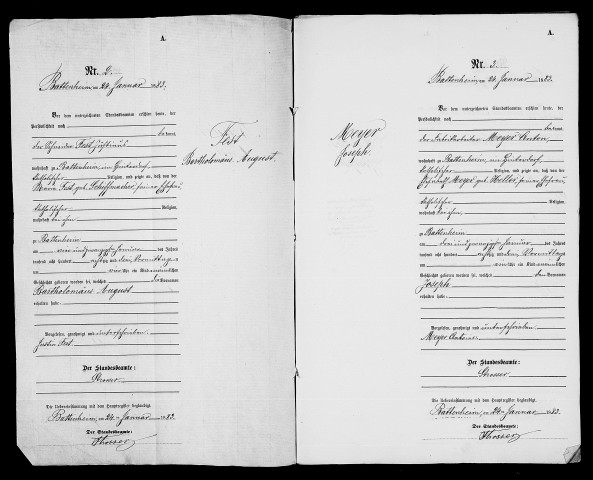 A.
Nr. 2.
Battenheim, am 24. Januar 1883.
Vor dem unterzeichneten Standesbeamten erschien heute, der
Persönlichkeit nach
bekannt,
der Schneider Fest Justinus
wohnhaft zu Battenheim im Hinterdorf
katholischer Religion, und zeigte an, daß von der
Fest geb. Schiffmacher seiner Ehefrau
katholischer Religion,
wohnhaft bei ihm
zu Battenheim
am ein und zwanzigsten Januar des Jahres
tausend acht hundert achtzig und drei Vormittags
um Uhr ein Kind männlichen
Geschlechts geboren worden sei, welches die Vornamen
Bartholomäus August
erhalten habe.
Vorgelesen, genehmigt und unterschrieben
Justin Fest
Der Standesbeamte:
Strosser
Die Uebereinstimmung mit dem Hauptregister beglaubigt
Battenheim, am 24. Januar 1883.
Der Standesbeamte:
Strosser
Fest
Bartholomäus August
A.
Nr. 3.
Battenheim, am 24. Januar 1883.
Vor dem unterzeichneten Standesbeamten erschien heute, der
Persönlichkeit nach
bekannt,
der Fabrikarbeiter Meyer Anton
wohnhaft zu Battenheim im Hinterdorf
katholischer Religion, und zeigte an, daß von der
Meyer geb. seiner Ehefrau
katholischer Religion,
wohnhaft bei ihm
zu Battenheim
am drei und zwanzigsten Januar des Jahres
tausend acht hundert achtzig und drei Vormittags
um Uhr ein Kind männlichen
Geschlechts geboren worden sei, welches den Vornamen
Joseph
erhalten habe.
Vorgelesen, genehmigt und unterschrieben
Meyer Antoine
Der Standesbeamte:
Strosser
Die Uebereinstimmung mit dem Hauptregister beglaubigt
Battenheim, am 24. Januar 1883.
Der Standesbeamte:
Strosser
Meyer
Joseph